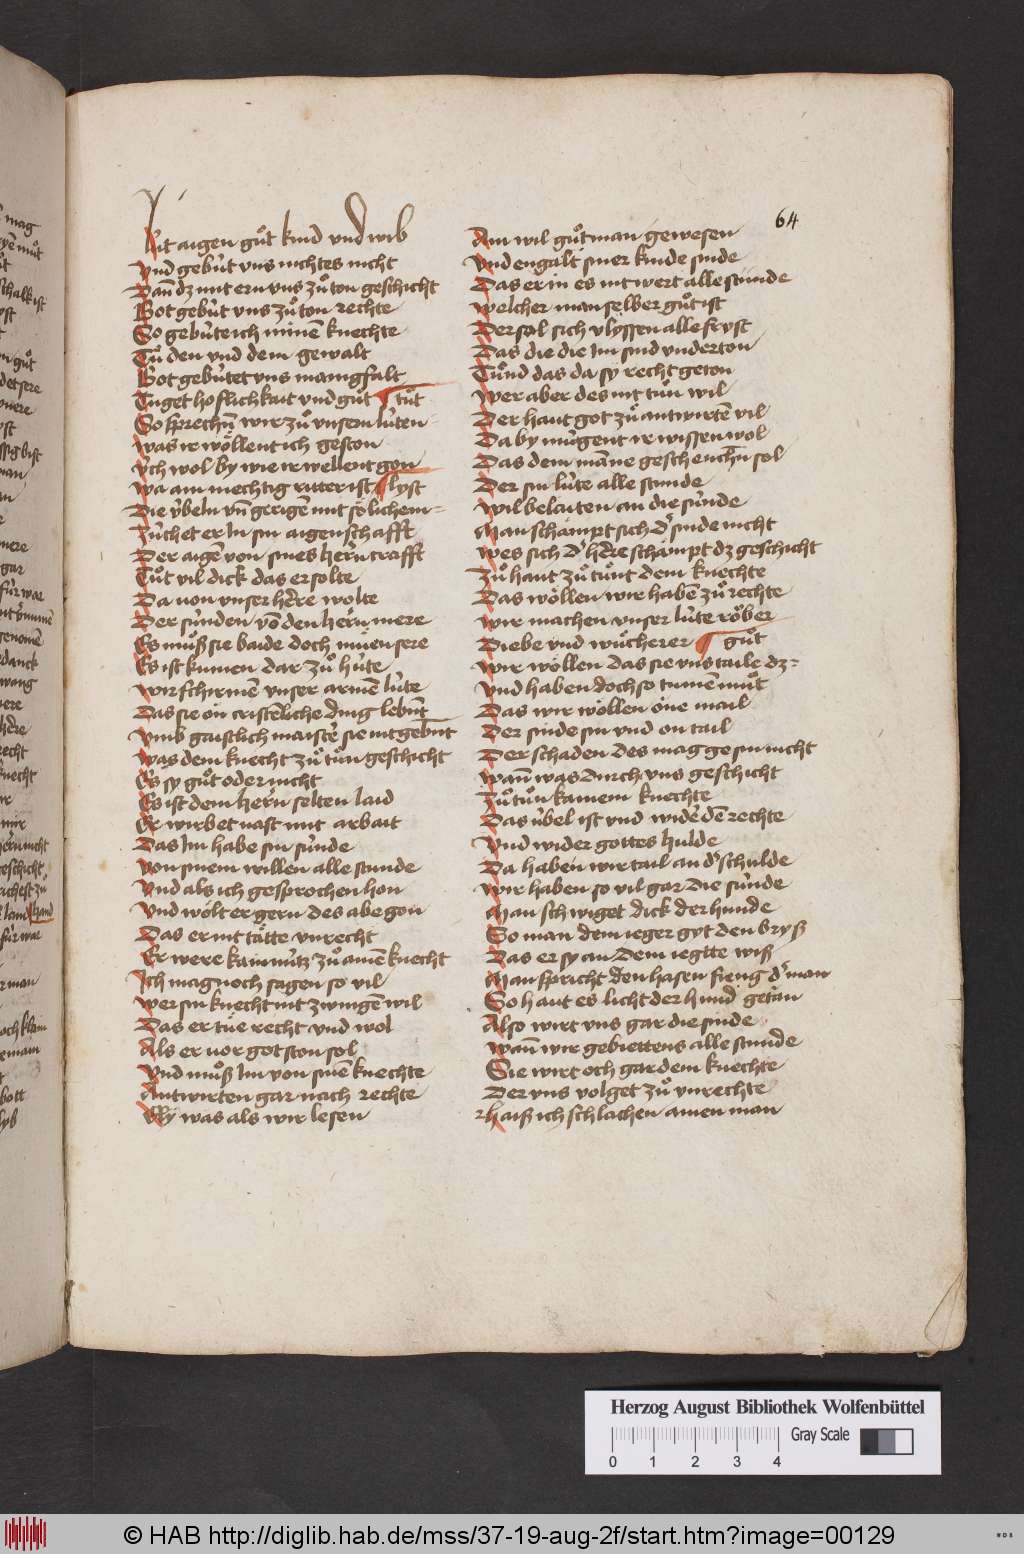 64
Nit aigen guͦt kind vnd wib
Vnd gebùt vns nichtes nicht
Dan̄ dz mit ern vns zuͦ ton geschicht
Got gebùt vns zuͦ ton rechte
So gebùte ich minē knechte
Tuͦ den vnd dem gewalt
Got gebùtet vns manigfalt
Tuget hoflichkait vnd guͦt tuͦt
So sprechn̄ wir zuͦ vnsern lùten
was ir wöllent ich geston
ùch wol by wie ir wellent gon
wa am mechtig ritter ist lyst
Die ùbeln vn̄ gerigē mit sölichem
Zùchet er In sin aigenschafft
Der aigē von sines hern crafft
Tuͦt vil dick das er solte
Da von vnser hēre wolte
Der sùnden vō den hern mere
Es muͦß sie baide doch mùen sere
Es ist kumen dar zuͦ hùte
wir schirmen vnser armē lùte
Das sie on cristēliche ding lebn̄t
Vmb gaistlich maistē sie nit gebn̄t
was dem knecht zuͦ tuͦn geschicht
Es sy guͦt oder nicht
Es ist dem hern selten laid
Er wirbet vast mit arbait
Das Im habe sin sùnde
von sinem willen alle stunde
Vnd als ich gesprochen hon
Vnd wölt er gern des abe gon
Das er nit tätte vnrecht
Er were kain nùtz zuͦ amē knecht
Ich mag noch sagen so vil
wer sin knecht nit zwingē wil
Das er tùe recht vnd wol
Als er vor got ston sol
Vnd muͦß Im von sinē knechte
Antwirten gar nach rechte
Ely was als wir lesen
Am wil guͦt man gewesen
Vnd engalt siner kinde sinde
Das er in es nit wert alle stunde
welcher man selber guͦt ist
Der sol sich vlyssen alle fryst
Das die die Im sind vnderton
Tuͦnd das da sy recht geton
wer aber des nit tuͦn wil
Der haut got zuͦ antwirtē vil
Da by mùgent ir wissen wol
Das dem manne geschenchn̄ sol
Der sin lùte alle stunde
wil belaiten an die sùnde
Man schämpt sich dʼ sinde nicht
wes sich dʼ hēre schämpt dz geschicht
Zuͦ haut zuͦ tuͦnt dem knechte
Das wöllen wir habē zuͦ rechte
wir machen vnser lùte röber
Diebe vnd wuͦcherer guͦt
wir wöllen das sie vns taile dz
Vnd haben doch so tumē muͦt
Das wir wöllen one mail
Der sinde sin vnd on tail
Der schaden des mag ge sin nicht
wan̄ was durch vns geschicht
Zuͦ tuͦn kainem knechte
Das ùbel ist vnd widʼ dē rechte
Vnd wider gottes hulde
Da haben wir tail an dʼ schulde
wir haben so vil gar die sùnde
Man schwiget dick der hunde
So man dem ieger gyt den bryß
Das er sy an dem ieglte wiß
Man spricht den hasen fieng dʼ man
So haut es licht der hund getan
Also wirt vns gar die sinde
wan̄ wir gebiettens alle stunde
Sie wirt och gar dem knechte
Der vns volget zuͦ vnrechte
haiß ich schlachen ainen man
Herzog August Bibliothek Wolfenbüttel
Gray Scale
0 1 2 3 4
© HAB http://diglib.hab.de/mss/37-19-aug-2f/start.htm?image=00129
WDB